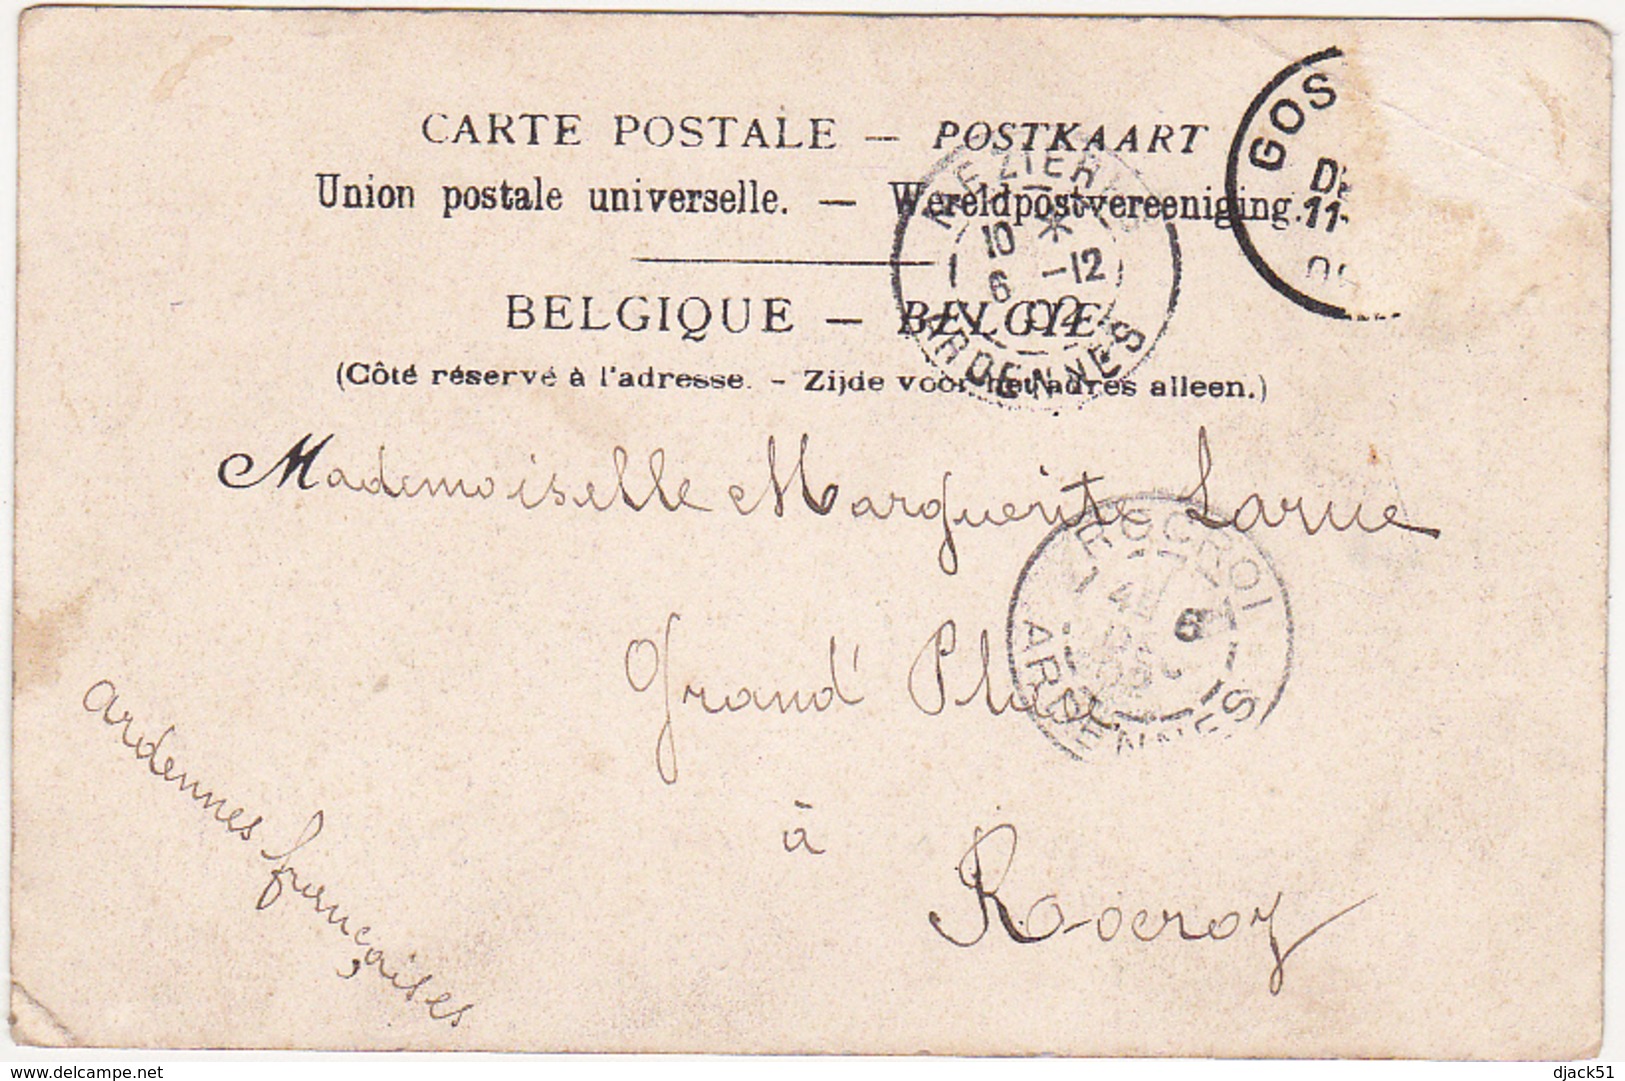 CARTE POSTALE — POSTKAART
Union postale universelle. — Wereldpostvereeniging.
BELGIQUE — BELGIE
(Côté réservé à l'adresse. - Zijde voor het adres alleen.)
GOS
11
MEZIERES
10
6 -12
02
ARDENNES
Mademoiselle Marguerite Larue
ROCROI
6
ARDENNES
Grand' Place
à
Rocroy
Ardennes françaises
delcampe.net
djack51